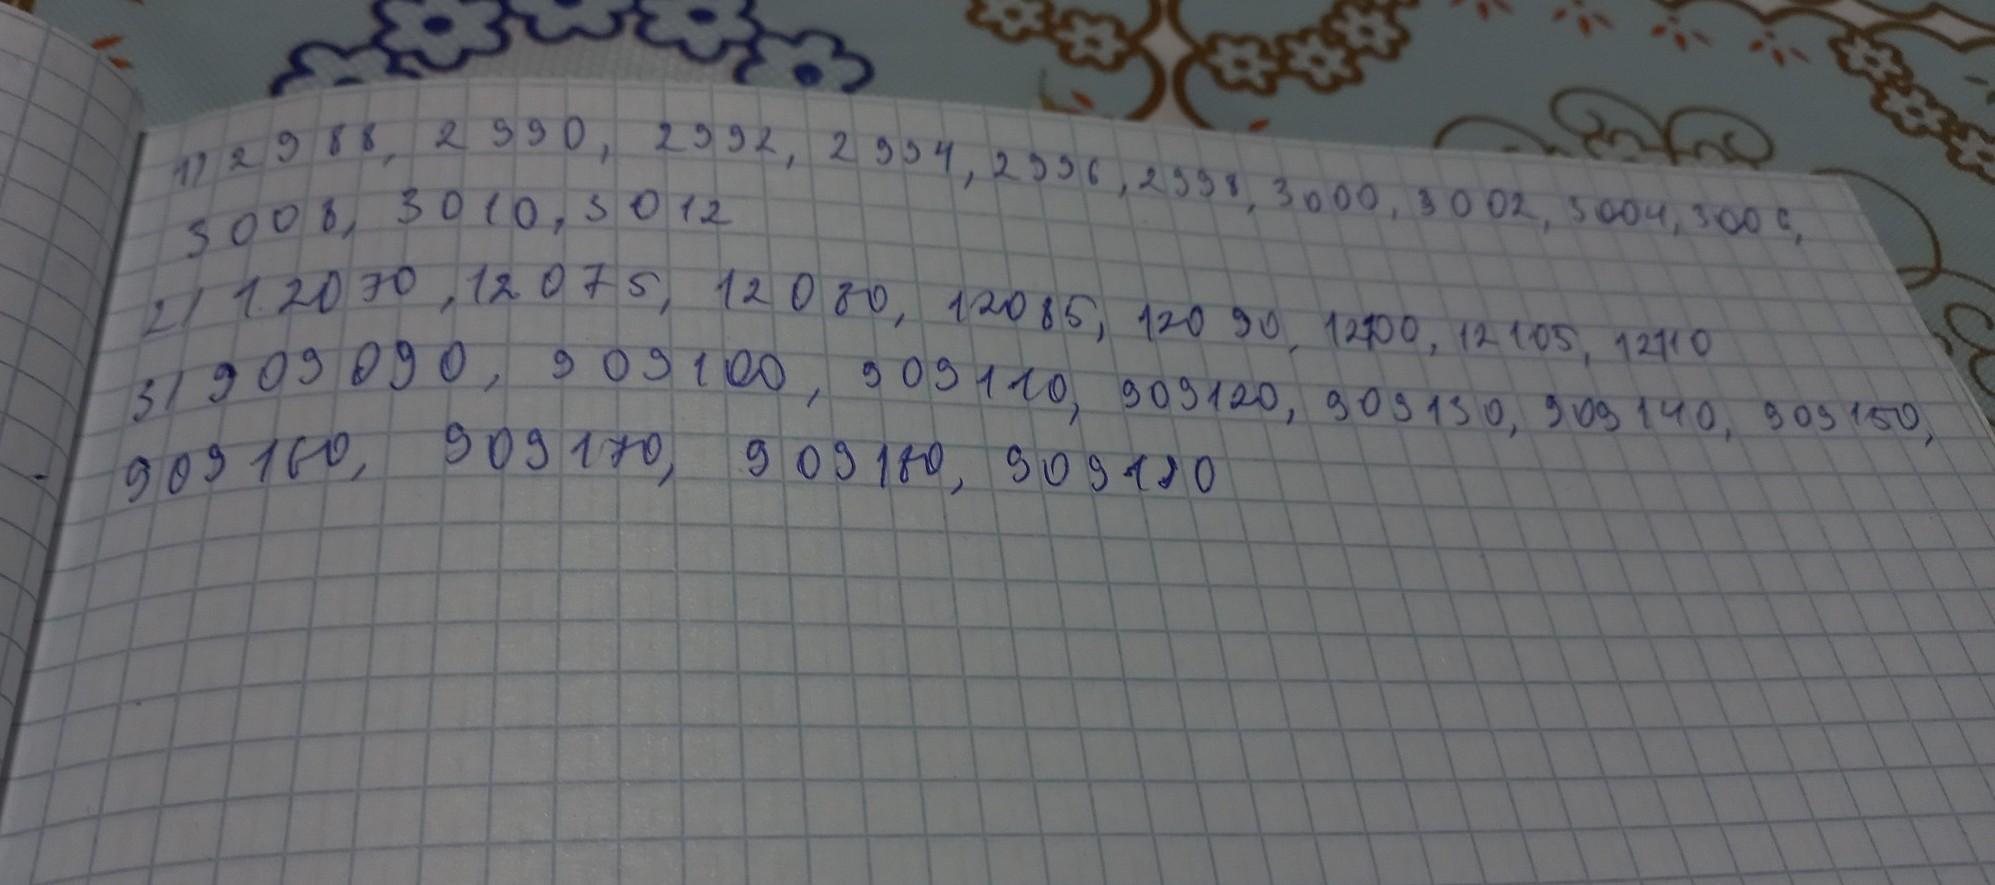 1) 2988, 2990, 2992, 2994, 2996, 2998, 3000, 3002, 3004, 3006,
3008, 3010, 3012
2) 12070, 12075, 12080, 12085, 12090, 12100, 12105, 12110
3) 909090, 909100, 909110, 909120, 909130, 909140, 909150,
909160, 909170, 909180, 909190